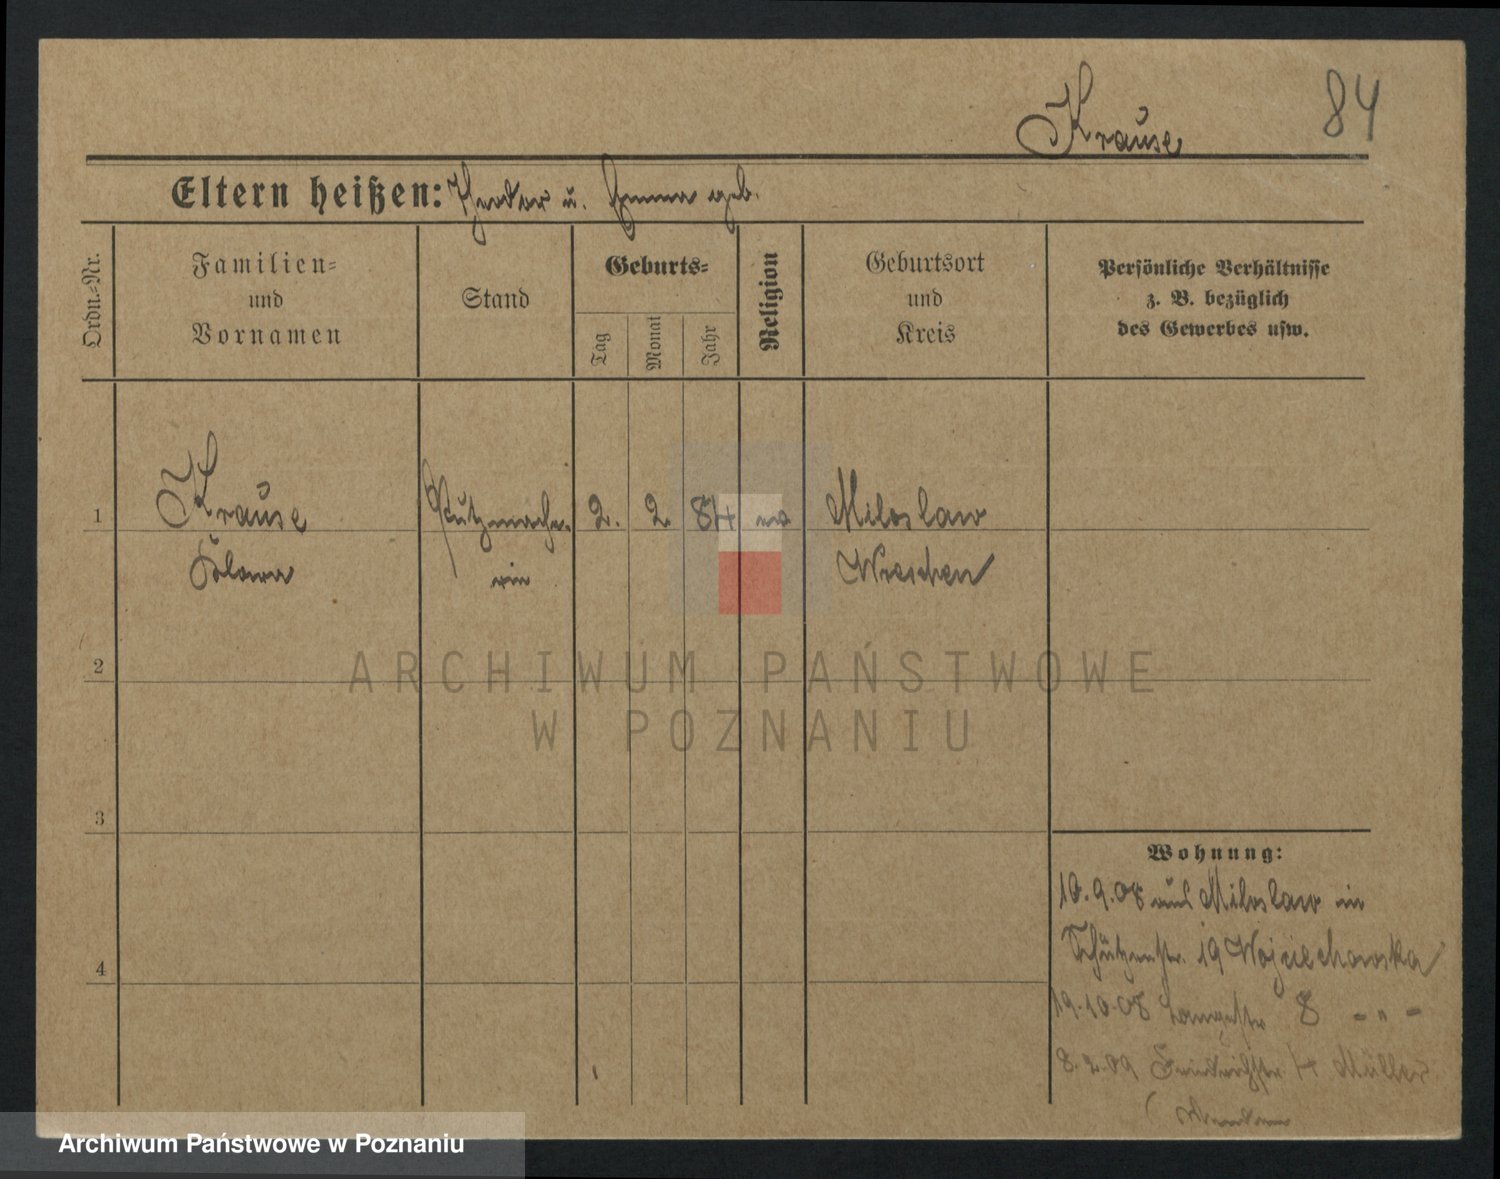 84
Krause
Eltern heißen: Theodor u. Emma geb.
Ordn.-Nr.
Familien-
und
Vornamen
Stand
Geburts-
Tag
Monat
Jahr
Religion
Geburtsort
und
Kreis
Persönliche Verhältnisse
z. B. bezüglich
des Gewerbes usw.
1 Krause Putzmache- 2. 2. 84 ev Miloslaw
Klara rin Wreschen
2
3
4
Wohnung:
10.9.08 aus Miloslaw in
Schützenstr. 19 Wojciechowska
19.10.08 Langestr 8 - " -
8.2.09 Friedrichstr Müller
ARCHIWUM PAŃSTWOWE
W POZNANIU
Archiwum Państwowe w Poznaniu